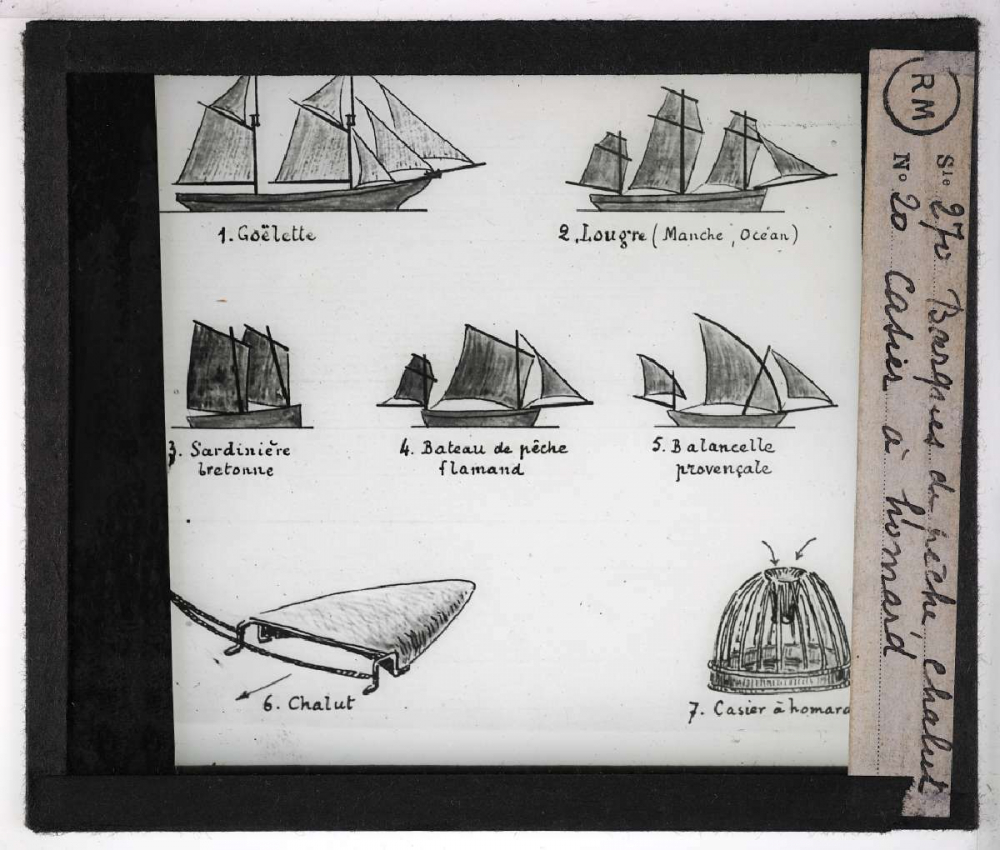 1. Goëlette
2. Lougre (Manche, Océan)
3. Sardinière
bretonne
4. Bateau de pêche
flamand
5. Balancelle
provençale
6. Chalut
7. Casier à homard
RM
Sie 270 Barques de pêche, chalut
No 20 Casier à homard